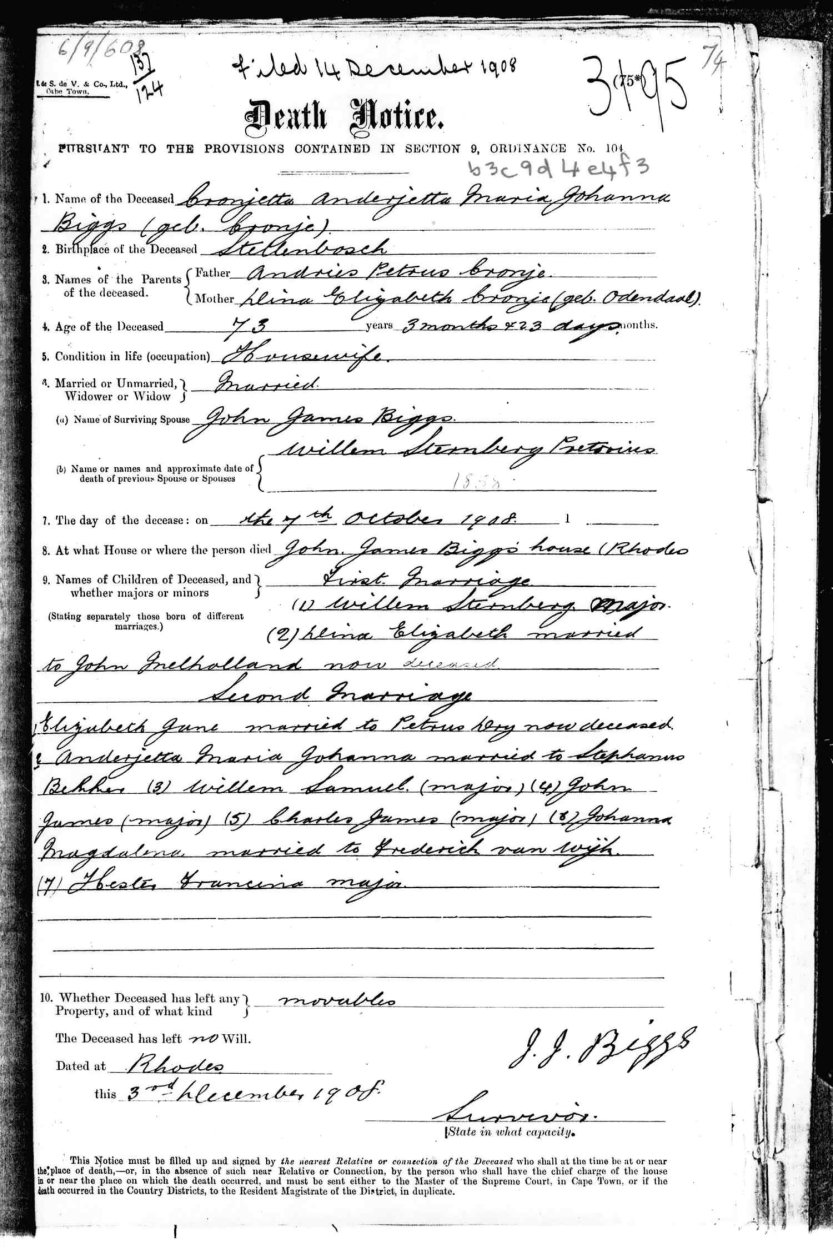 6/9/608
137
124
Filed 14 December 1908
3195
(75*
74
S. de V. & Co., Ltd.,
Cape Town.
Death Notice.
PURSUANT TO THE PROVISIONS CONTAINED IN SECTION 9, ORDINANCE No. 104
b3c9d4e4f3
1. Name of the Deceased Cronjetta Anderjetta Maria Johanna
Biggs (geb. Cronje).
2. Birthplace of the Deceased Stellenbosch
3. Names of the Parents of the deceased. { Father Andries Petrus Cronje.
Mother Dina Elizabeth Cronje (geb. Odendaal).
4. Age of the Deceased 73 years 3 months & 23 days months.
5. Condition in life (occupation) Housewife.
6. Married or Unmarried, Widower or Widow } Married.
(a) Name of Surviving Spouse John James Biggs.
(b) Name or names and approximate date of death of previous Spouse or Spouses { Willem Sternberg Pretorius
7. The day of the decease: on the 7th October 1908. 1
8. At what House or where the person died John James Biggs' house (Rhodes
9. Names of Children of Deceased, and whether majors or minors } First Marriage
(Stating separately those born of different marriages.)
(1) Willem Sternberg Major.
(2) Dina Elizabeth married
to John Melholland now deceased
Second Marriage
1 Elizabeth Jane married to Petrus Dry now deceased.
2 Anderjetta Maria Johanna married to Stephanus
Bekker (3) Willem Samuel (major) (4) John
James (major) (5) Charles James (major) (6) Johanna
Magdalena married to Frederick van Wijk.
(7) Hester Francina major.
10. Whether Deceased has left any Property, and of what kind } movables
The Deceased has left no Will.
J. J. Biggs
Dated at Rhodes
this 3rd December 1908.
Survivor.
[State in what capacity.
This Notice must be filled up and signed by the nearest Relative or connection of the Deceased who shall at the time be at or near
the place of death,—or, in the absence of such near Relative or Connection, by the person who shall have the chief charge of the house
in or near the place on which the death occurred, and must be sent either to the Master of the Supreme Court, in Cape Town, or if the
death occurred in the Country Districts, to the Resident Magistrate of the District, in duplicate.